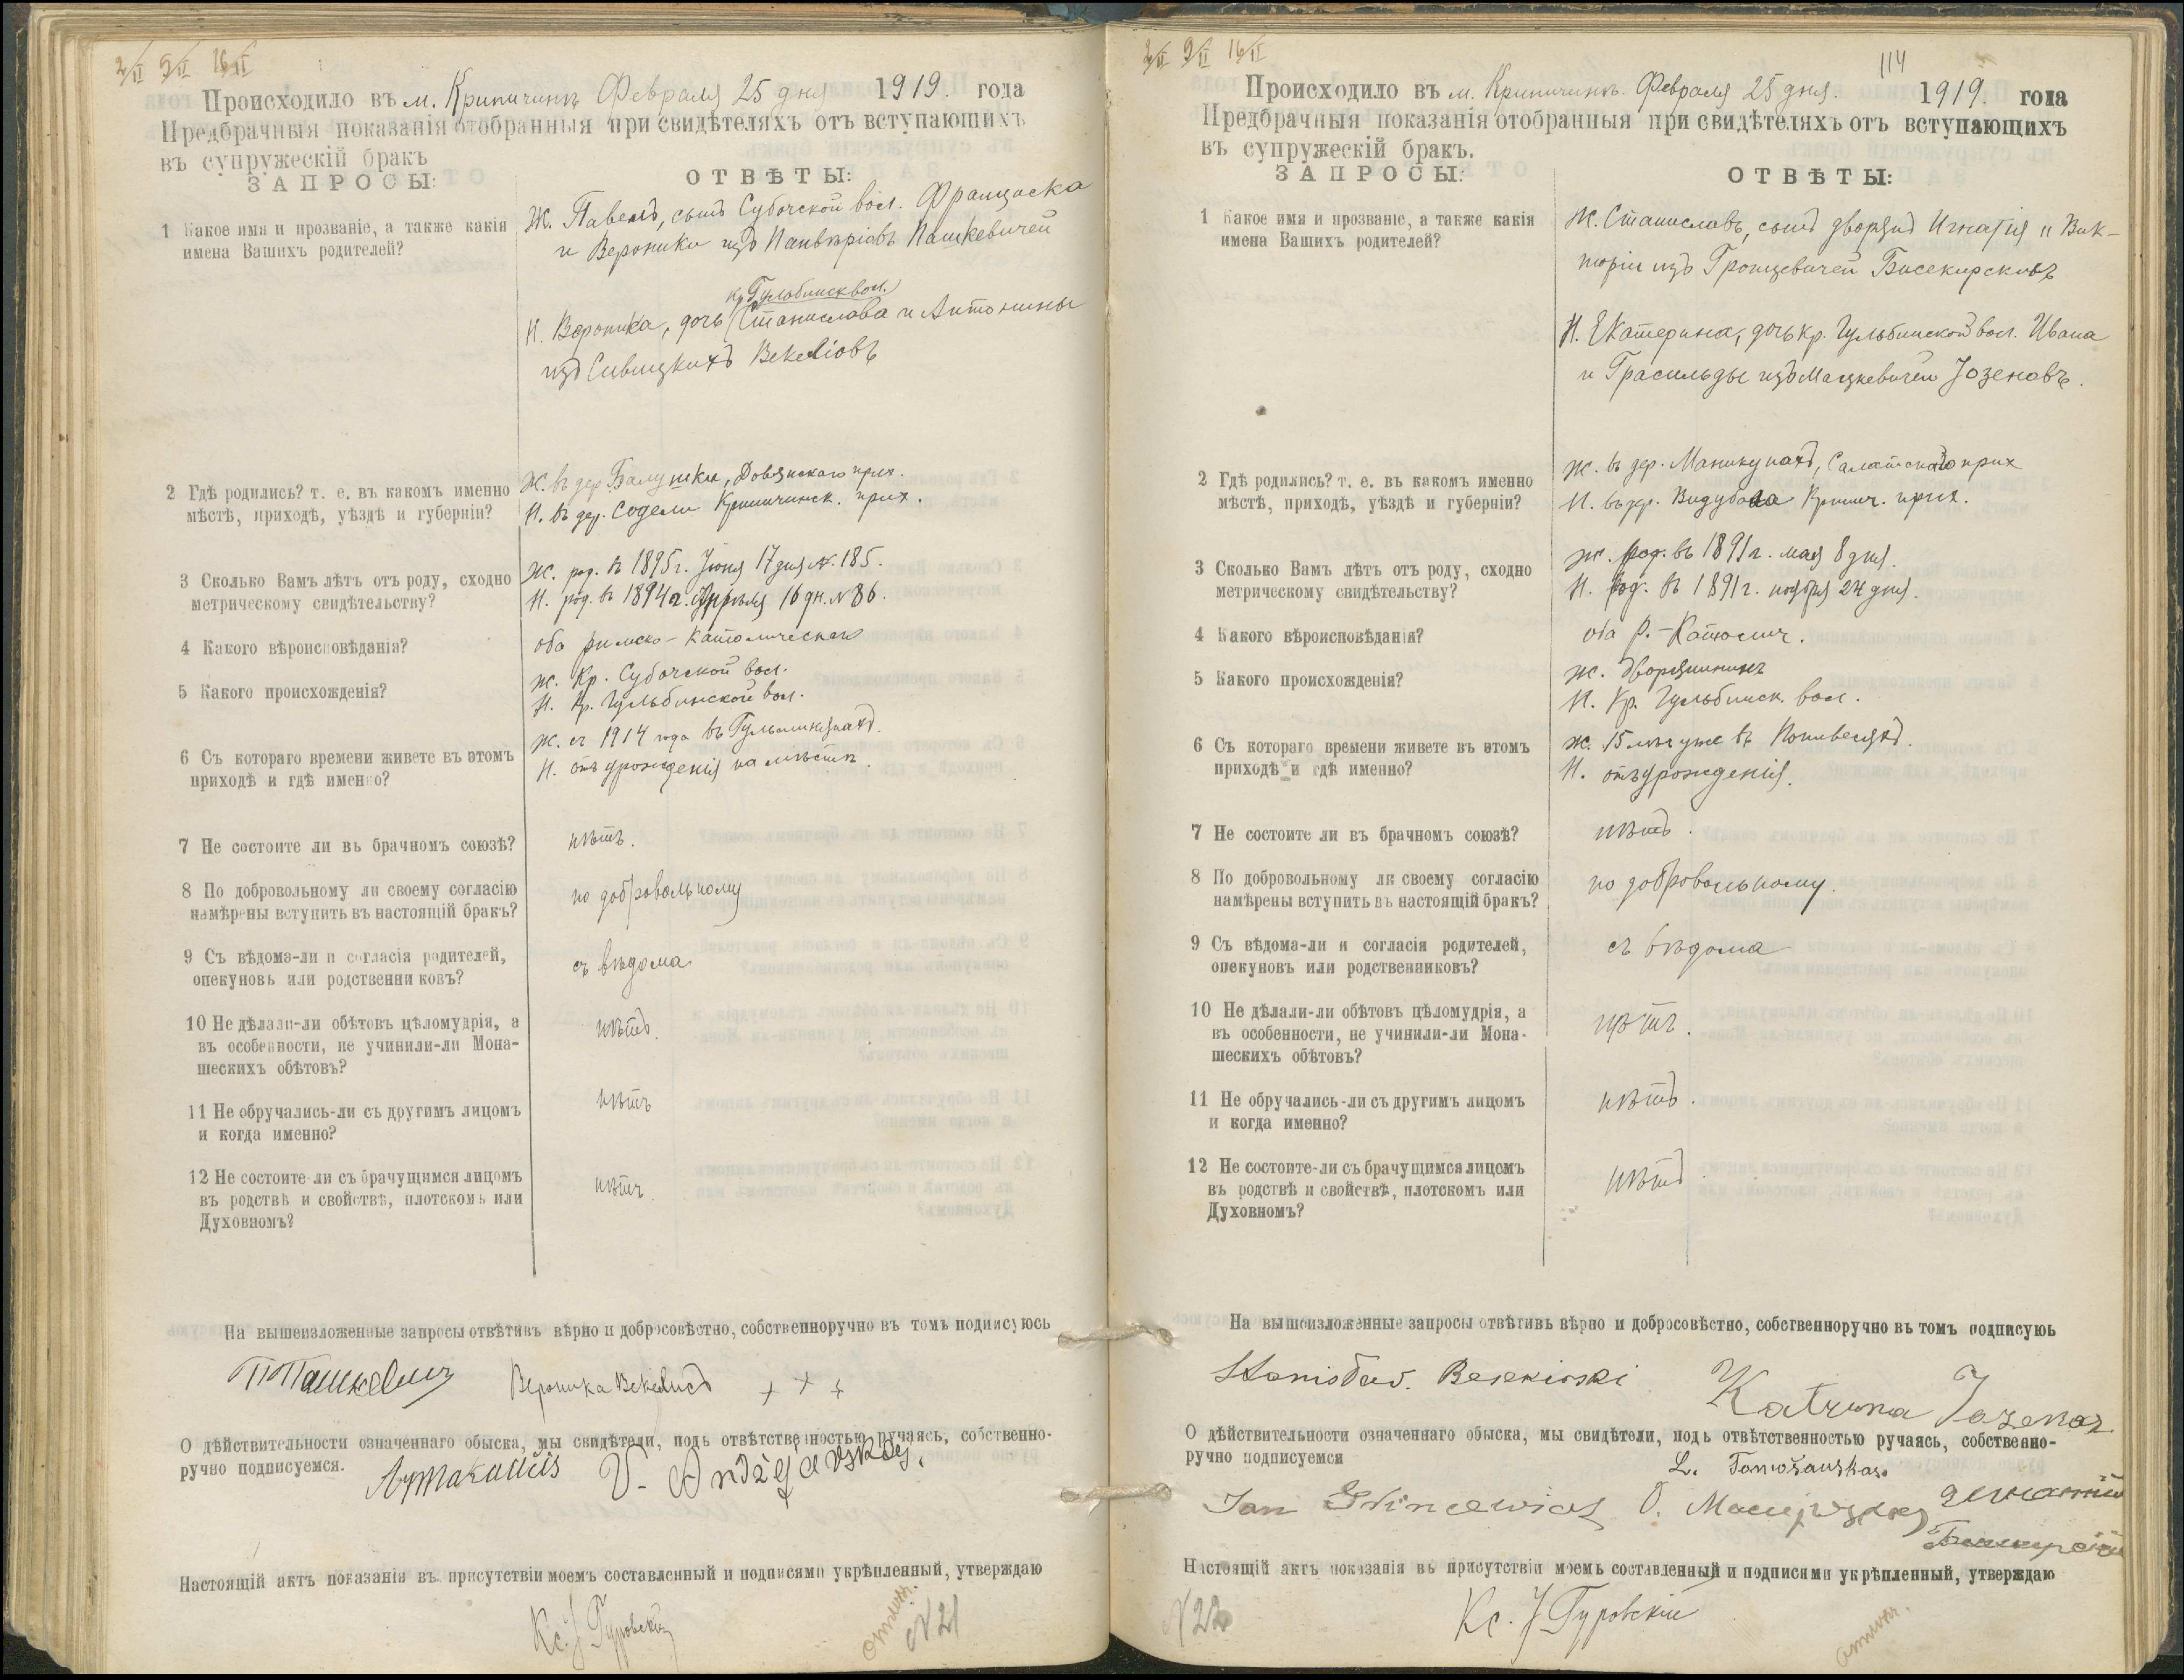 2/II 9/II 16/II
Происходило въ м. Крипичинъ Февраля 25 дня 1919. года
Предбрачныя показанія отобранныя при свидѣтеляхъ отъ вступающихъ
въ супружескій бракъ
ЗАПРОСЫ:
ОТВѢТЫ:
1 Какое имя и прозваніе, а также какія
имена Вашихъ родителей?
Ж. Павелъ, сынъ Субочской вол. Францыска
и Вероники изъ Пашкевичей
кр. Гульбинск вол.
Н. Вероника, дочь Станислава и Антонины
изъ Сивицкихъ Векеліовъ
2 Гдѣ родились? т. е. въ какомъ именно
мѣстѣ, приходѣ, уѣздѣ и губерніи?
Ж. въ дер. Балушки, прих.
Н. въ дер. Содели Крипичинск. прих.
3 Сколько Вамъ лѣтъ отъ роду, сходно
метрическому свидѣтельству?
Ж. род. въ 1895 г. Іюня 17 дня №. 185.
Н. род. въ 1894 г. Апрѣля 16 дн. № 86.
4 Какого вѣроисповѣданія?
оба римско-католическаго
5 Какого происхожденія?
Ж. Кр. Субочской вол.
Н. Кр. Гульбинской вол.
6 Съ котораго времени живете въ этомъ
приходѣ и гдѣ именно?
Ж. съ 1914 года въ
Н. отъ урожденія на мѣстѣ.
7 Не состоите ли въ брачномъ союзѣ?
нѣтъ.
8 По добровольному ли своему согласію
намѣрены вступить въ настоящій бракъ?
по добровольному
9 Съ вѣдома-ли и согласія родителей,
опекуновъ или родственниковъ?
съ вѣдома
10 Не дѣлали-ли обѣтовъ цѣломудрія, а
въ особенности, не учинили-ли Мона-
шескихъ обѣтовъ?
нѣтъ.
11 Не обручались-ли съ другимъ лицомъ
и когда именно?
нѣтъ
12 Не состоите-ли съ брачущимся лицомъ
въ родствѣ и свойствѣ, плотскомъ или
Духовномъ?
нѣтъ.
На вышеизложенные запросы отвѣтивъ вѣрно и добросовѣстно, собственноручно въ томъ подписуюсь
П Пашкевичъ Вероника + + +
О дѣйствительности означеннаго обыска, мы свидѣтели, подъ отвѣтственностью ручаясь, собственно-
ручно подписуемся.
V.
Настоящій актъ показанія въ присутствіи моемъ составленный и подписями укрѣпленный, утверждаю
Кс. J Гуровскій
N 21
2/II 9/II 16/II
114
Происходило въ м. Крипичинъ. Февраля 25 дня. 1919. года
Предбрачныя показанія отобранныя при свидѣтеляхъ отъ вступающихъ
въ супружескій бракъ.
ЗАПРОСЫ:
ОТВѢТЫ:
1 Какое имя и прозваніе, а также какія
имена Вашихъ родителей?
Ж. Станиславъ, сынъ дворянъ Игнатія и Вик-
торіи изъ Гронцевичей Бисекирскихъ
Н. Екатерина, дочь кр. Гульбинской вол. Ивана
и Грасильды изъ Мацкевичей Юзеновъ.
2 Гдѣ родились? т. е. въ какомъ именно
мѣстѣ, приходѣ, уѣздѣ и губерніи?
Ж. въ дер. Маникунахъ, Салатскаго прих
Н. въ дер. Крипич. прих.
3 Сколько Вамъ лѣтъ отъ роду, сходно
метрическому свидѣтельству?
Ж. род. въ 1891 г. мая 8 дня.
Н. род. въ 1891 г. ноября 24 дня.
4 Какого вѣроисповѣданія?
оба Р.-Католич.
5 Какого происхожденія?
Ж. Дворянинъ
Н. Кр. Гульбинск. вол.
6 Съ котораго времени живете въ этомъ
приходѣ и гдѣ именно?
Ж. 15 лѣтъ уже въ
Н. отъ урожденія.
7 Не состоите ли въ брачномъ союзѣ?
нѣтъ.
8 По добровольному ли своему согласію
намѣрены вступить въ настоящій бракъ?
по добровольному.
9 Съ вѣдома-ли и согласія родителей,
опекуновъ или родственниковъ?
съ вѣдома
10 Не дѣлали-ли обѣтовъ цѣломудрія, а
въ особенности, не учинили-ли Мона-
шескихъ обѣтовъ?
нѣтъ.
11 Не обручались-ли съ другимъ лицомъ
и когда именно?
нѣтъ.
12 Не состоите-ли съ брачущимся лицемъ
въ родствѣ и свойствѣ, плотскомъ или
Духовномъ?
нѣтъ
На вышеизложенные запросы отвѣтивъ вѣрно и добросовѣстно, собственноручно въ томъ подписуюь
Stanisław. Besekirski Katruna Jozenas
О дѣйствительности означеннаго обыска, мы свидѣтели, подъ отвѣтственностью ручаясь, собственно-
ручно подписуемся
L. Tamošauskas.
Jan O.
Настоящій актъ показанія въ присутствіи моемъ составленный и подписями укрѣпленный, утверждаю
Кс. J Гуровскій
N 22